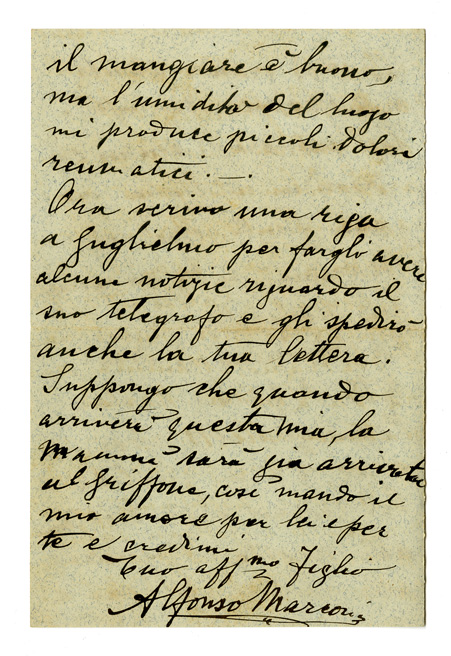 il mangiare è buono,
ma l'umidità del luogo
mi produce piccoli dolori
reumatici. —.
Ora scrivo una riga
a Guglielmo per fargli avere
alcune notizie riguardo il
suo telegrafo e gli spedirò
anche la tua lettera.
Suppongo che quando
arriverà questa mia, la
Mamma sarà già arrivata
al Griffone, così mando il
mio amore per lei e per
te e credimi
tuo aff.mo Figlio
Alfonso Marconi